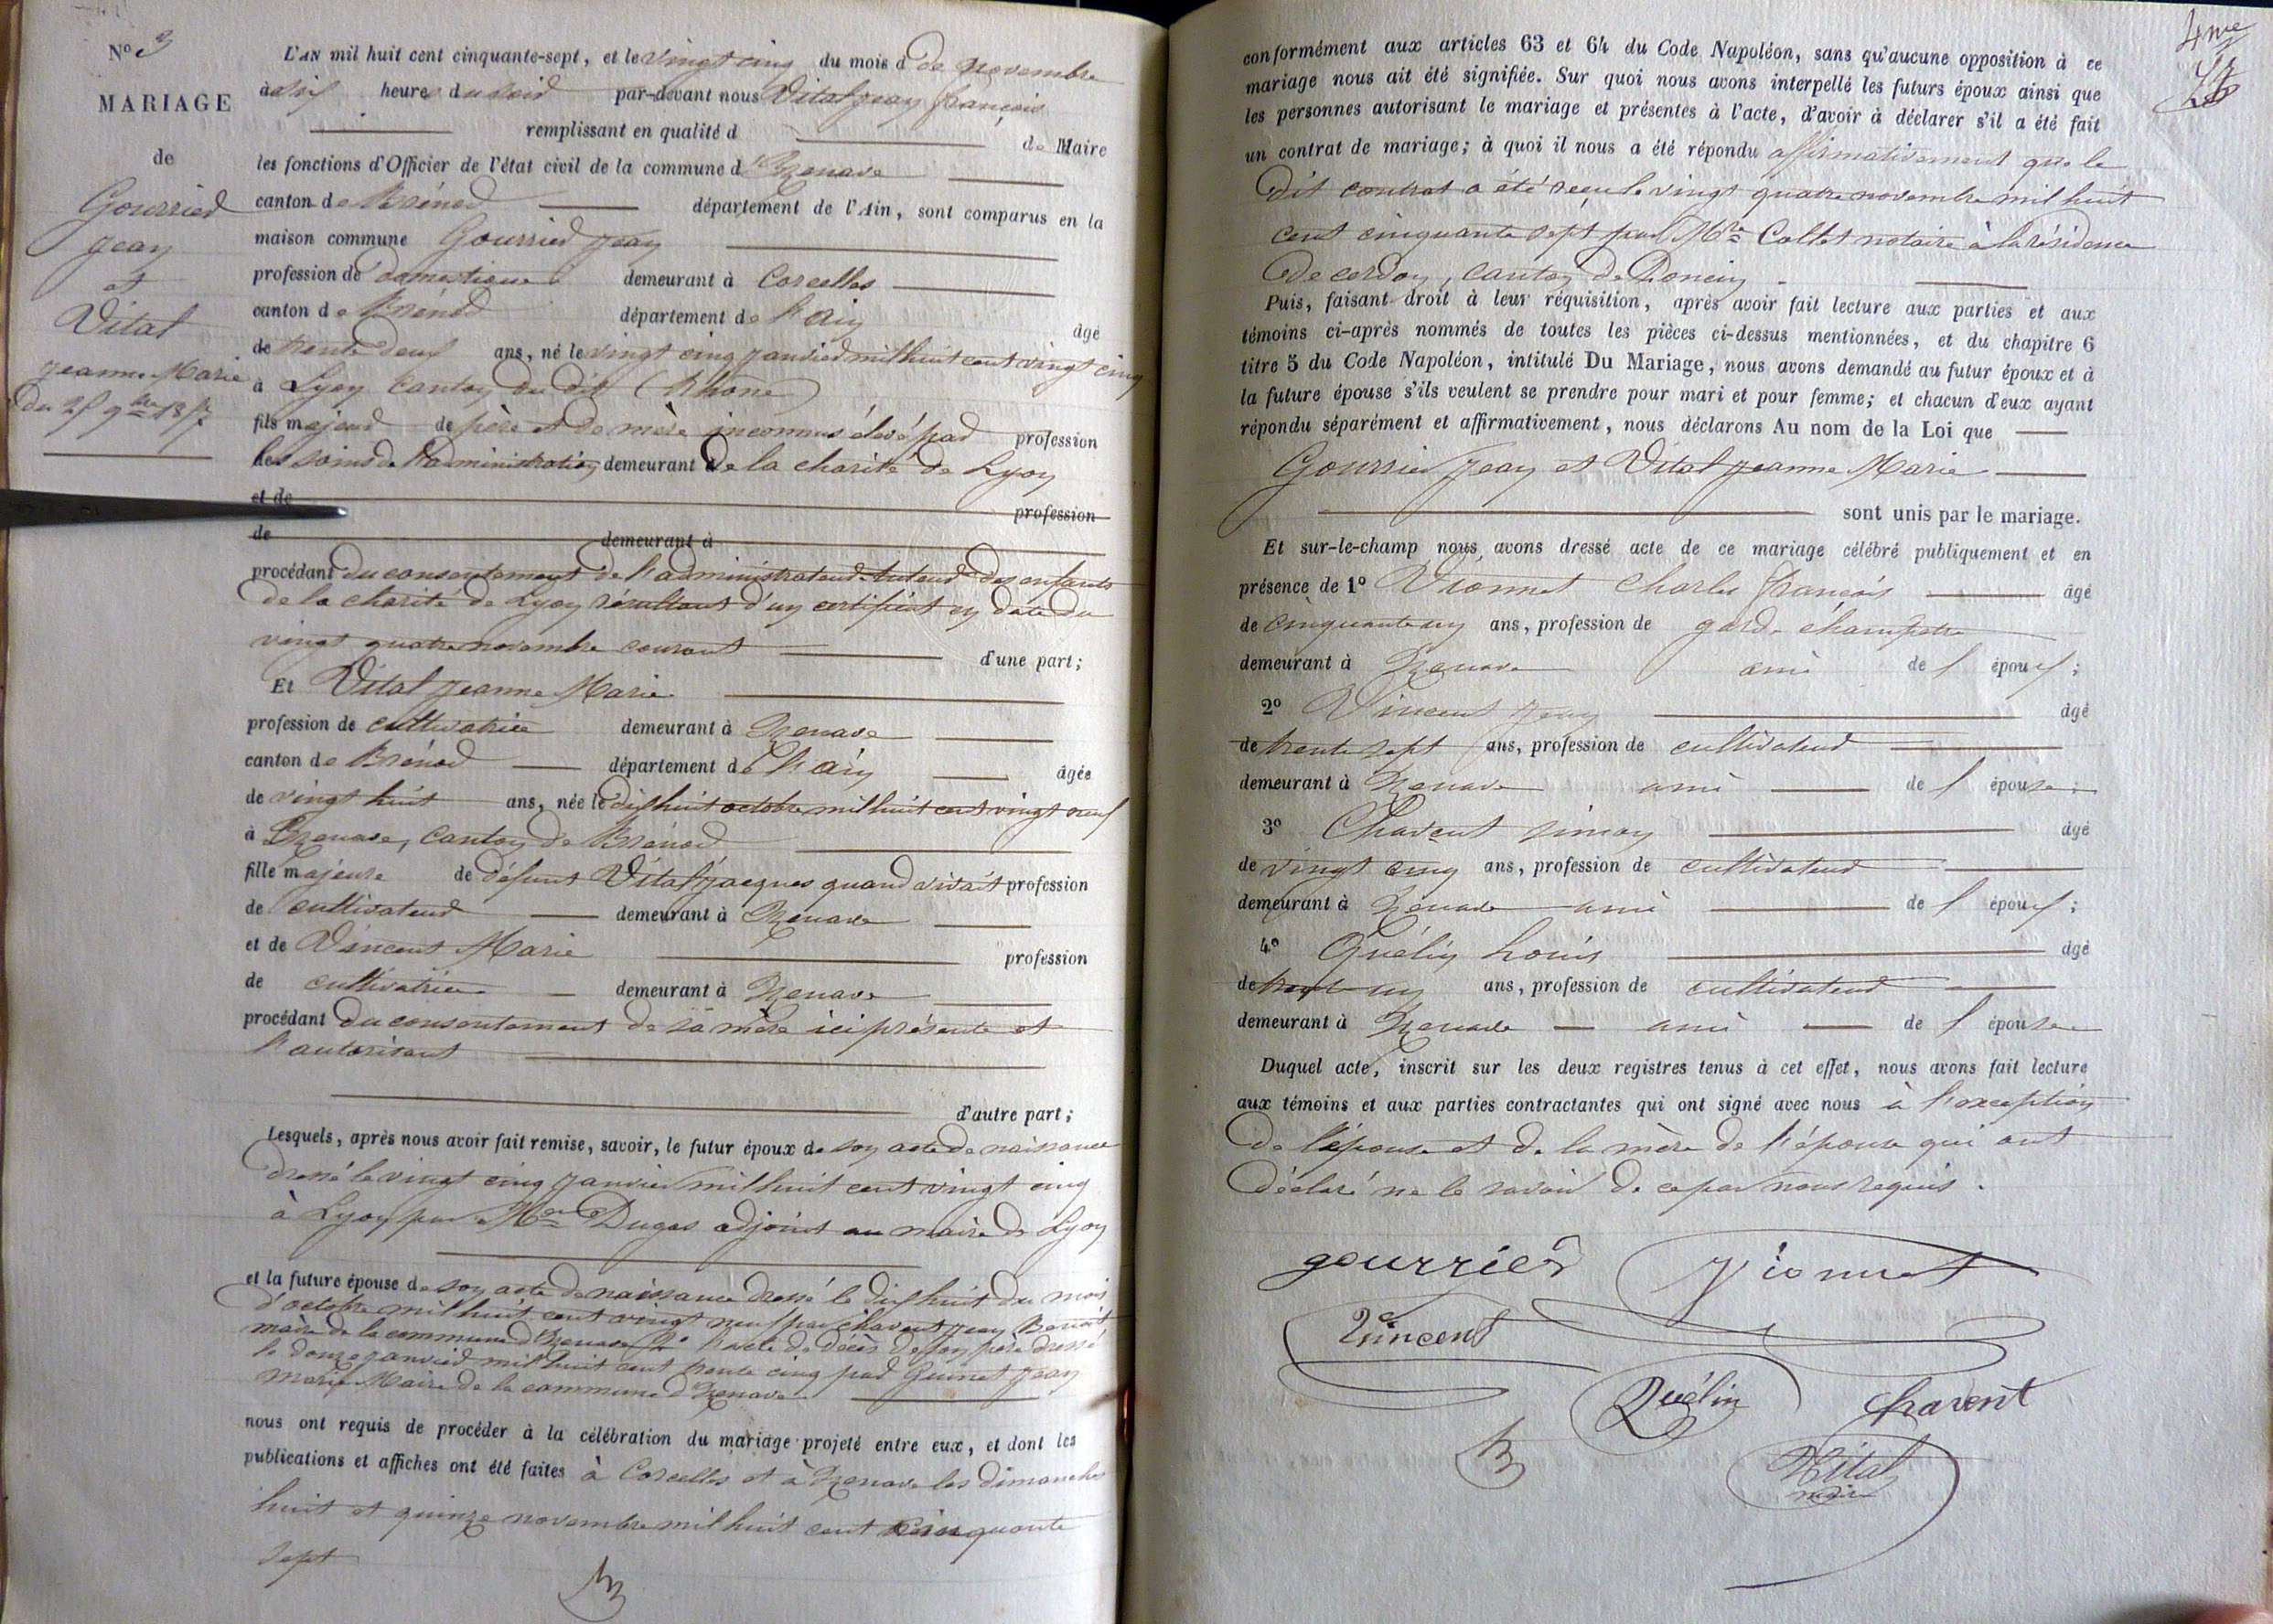 N° 3
MARIAGE
de
Gourrier
Jean
et
Vital
Jeanne Marie
Du 25 9bre 1857
L'AN mil huit cent cinquante-sept, et le vingt cinq du mois d de novembre
à six heures du soir par-devant nous Vital Jean françois
remplissant en qualité d de Maire
les fonctions d'Officier de l'état civil de la commune d'Izenave
canton de Brénod département de l'Ain, sont comparus en la
maison commune Gourrier Jean
profession de domestique demeurant à Corcelles
canton de Brénod département de l'ain âgé
de trente deux ans, né le vingt cinq janvier mil huit cent vingt cinq
à Lyon canton du dit (Rhône)
fils majeur de père et de mère inconnus élevé par profession
de les soins de l'administration demeurant à de la charité de Lyon
et de profession
de demeurant à
procédant du consentement de l'administrateur tuteur des enfants
de la charité de Lyon résultant d'un certificat en date du
vingt quatre novembre courant d'une part;
Et Vital Jeanne Marie
profession de cultivatrice demeurant à Izenave
canton de Brénod département de l'ain âgée
de vingt huit ans, née le dix huit octobre mil huit cent vingt neuf
à Izenave, canton de Brénod
fille majeure de défunt Vital Jacques quand vivait profession
de cultivateur demeurant à Izenave
et de Vincent Marie profession
de cultivatrice demeurant à Izenave
procédant du consentement de sa mère ici présente et
l'autorisant
d'autre part;
Lesquels, après nous avoir fait remise, savoir, le futur époux de son acte de naissance
dressé le vingt cinq janvier mil huit cent vingt cinq
à Lyon par Mr Dugas adjoint au maire de Lyon
et la future épouse de son acte de naissance dressé le dix huit du mois
d'octobre mil huit cent vingt neuf par chavent jean Benoit
maire de la commune d'Izenave 2° l'acte de décès de son père dressé
le douze janvier mil huit cent trente cinq par Guinet Jean
marie Maire de la commune d'Izenave
nous ont requis de procéder à la célébration du mariage projeté entre eux, et dont les
publications et affiches ont été faites à Corcelles et à Izenave les dimanches
huit et quinze novembre mil huit cent cinquante
sept
4me
conformément aux articles 63 et 64 du Code Napoléon, sans qu'aucune opposition à ce
mariage nous ait été signifiée. Sur quoi nous avons interpellé les futurs époux ainsi que
les personnes autorisant le mariage et présentes à l'acte, d'avoir à déclarer s'il a été fait
un contrat de mariage; à quoi il nous a été répondu affirmativement que le
dit contrat a été reçu le vingt quatre novembre mil huit
cent cinquante sept par Mre Collet notaire à la résidence
de cerdon, canton de Poncin
Puis, faisant droit à leur réquisition, après avoir fait lecture aux parties et aux
témoins ci-après nommés de toutes les pièces ci-dessus mentionnées, et du chapitre 6
titre 5 du Code Napoléon, intitulé Du Mariage, nous avons demandé au futur époux et à
la future épouse s'ils veulent se prendre pour mari et pour femme; et chacun d'eux ayant
répondu séparément et affirmativement, nous déclarons Au nom de la Loi que
Gourrier Jean et Vital Jeanne Marie
sont unis par le mariage.
Et sur-le-champ nous avons dressé acte de ce mariage célébré publiquement et en
présence de 1° Vionnet Charles françois âgé
de cinquante un ans, profession de garde champetre
demeurant à Izenave ami de l époux;
2° Vincent Jean âgé
de trente sept ans, profession de cultivateur
demeurant à Izenave ami de l épouse;
3° Chavent Simon âgé
de vingt cinq ans, profession de cultivateur
demeurant à Izenave ami de l époux;
4° Quélin Louis âgé
de trente un ans, profession de cultivateur
demeurant à Izenave ami de l épouse
Duquel acte, inscrit sur les deux registres tenus à cet effet, nous avons fait lecture
aux témoins et aux parties contractantes qui ont signé avec nous à l'exception
de l'épouse et de la mère de l'épouse qui ont
déclaré ne le savoir de ce par nous requis.
gourrier Vionnet
Vincent
Quélin chavent
Vital
maire